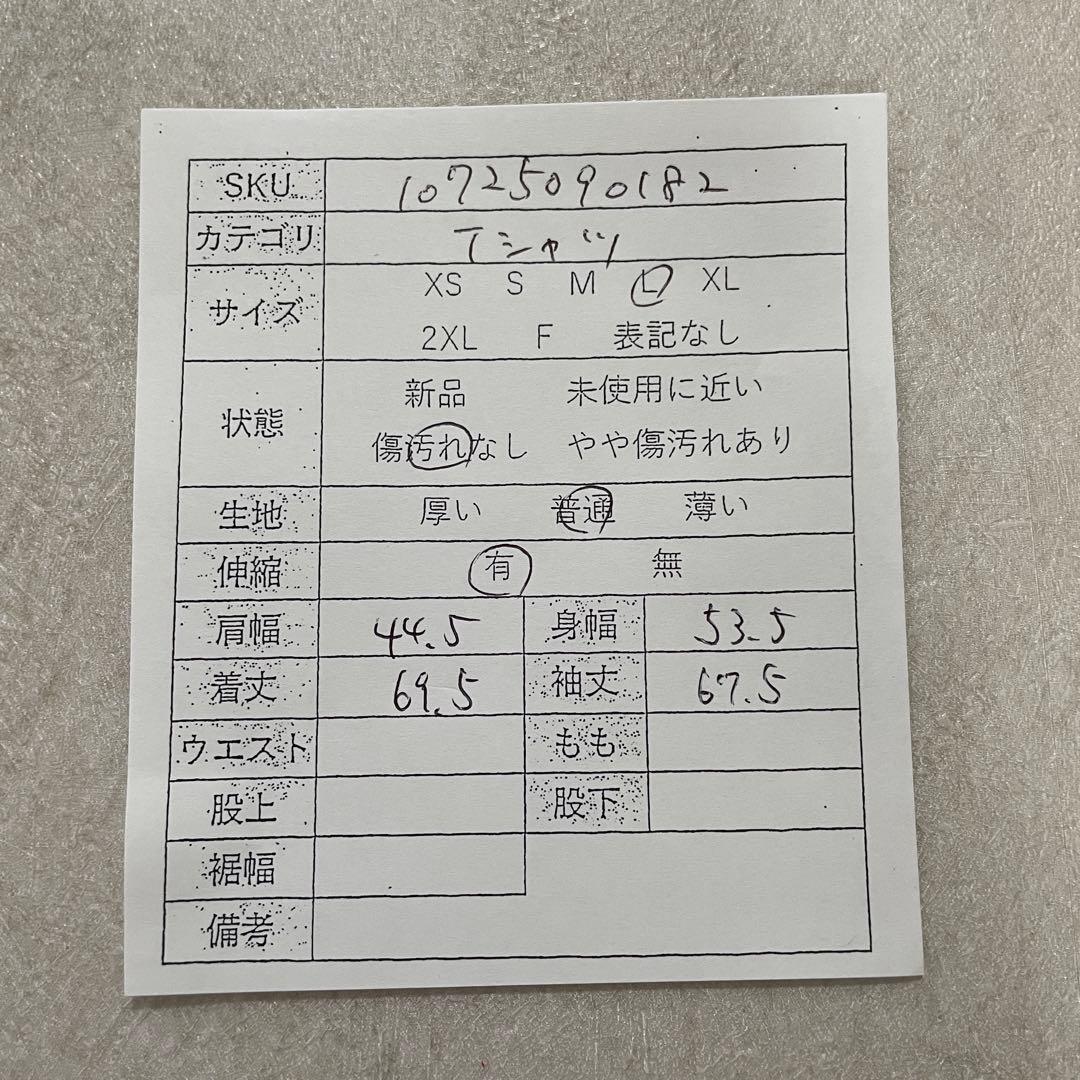 SKU 10725090182
カテゴリ Tシャツ
サイズ XS S M L XL
2XL F 表記なし
状態 新品 未使用に近い
傷汚れなし やや傷汚れあり
生地 厚い 普通 薄い
伸縮 有 無
肩幅 44.5 身幅 53.5
着丈 69.5 袖丈 67.5
ウエスト もも
股上 股下
裾幅
備考